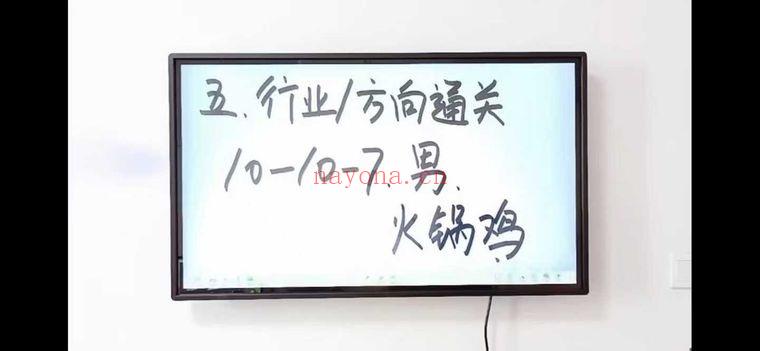 五、行业/方向通关
10-10-7.男.
nayona.cn
火锅鸡.